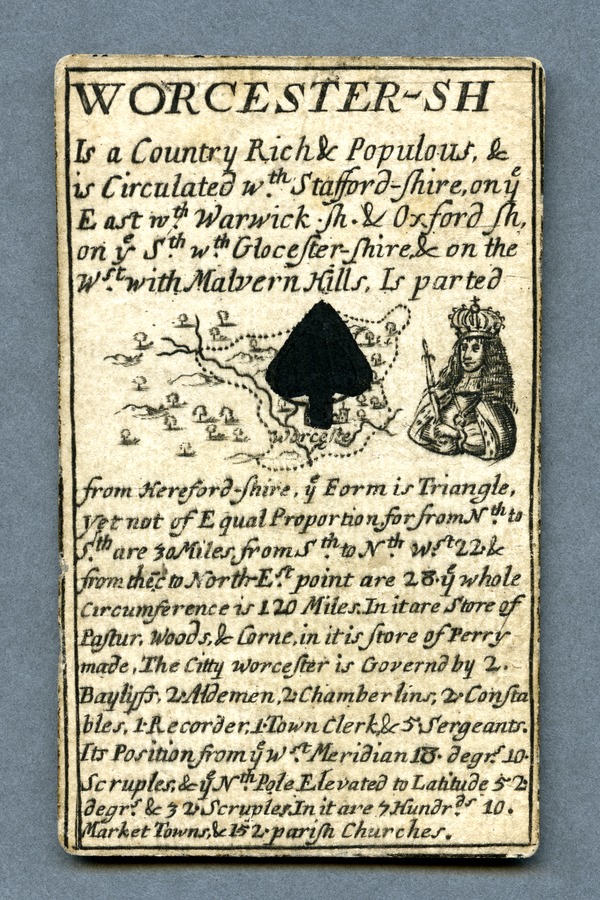 WORCESTER-SH
Is a Country Rich & Populous, &
is Circulated wth Stafford-shire, on ye
East wth Warwick-sh. & Oxford sh,
on ye Sth wth Glocester-shire, & on the
Wst with Malvern Hills, Is parted
Worcester
from Hereford-shire, ye Form is Triangle,
yet not of Equal Proportion for from Nth to
Sth are 30 Miles, from Sth to Nth Wst 22 &
from thec to North-Est point are 28. ye whole
Circumference is 120 Miles. In it are Store of
Pastur, Woods, & Corne, in it is store of Perry
made, The Citty Worcester is Governd by 2.
Baylyffs, 2. Aldemen, 2. Chamberlins, 2. Consta
bles, 1. Recorder, 1. Town Clerk, & 5. Sergeants.
Its Position from ye wst Meridian 18. degrs 10.
Scruples, & ye Nth Pole Elevated to Latitude 52
degrs & 32. Scruples. In it are 7 Hundrds 10.
Market Towns, & 152. parish Churches.